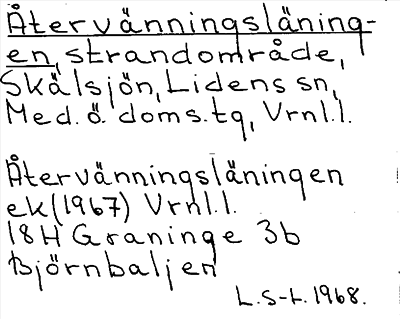 Återvänningsläning-
en, strandområde,
Skälsjön, Lidens sn,
Med. ö. doms.tg, Vrnl.l.
Återvänningsläningen
ek (1967) Vrnl.l.
18H Graninge 3b
Björnbaljen
L.S-t. 1968.